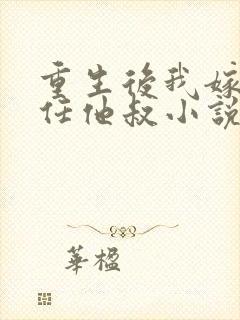 重生後我嫁
任他叔小說
華楹